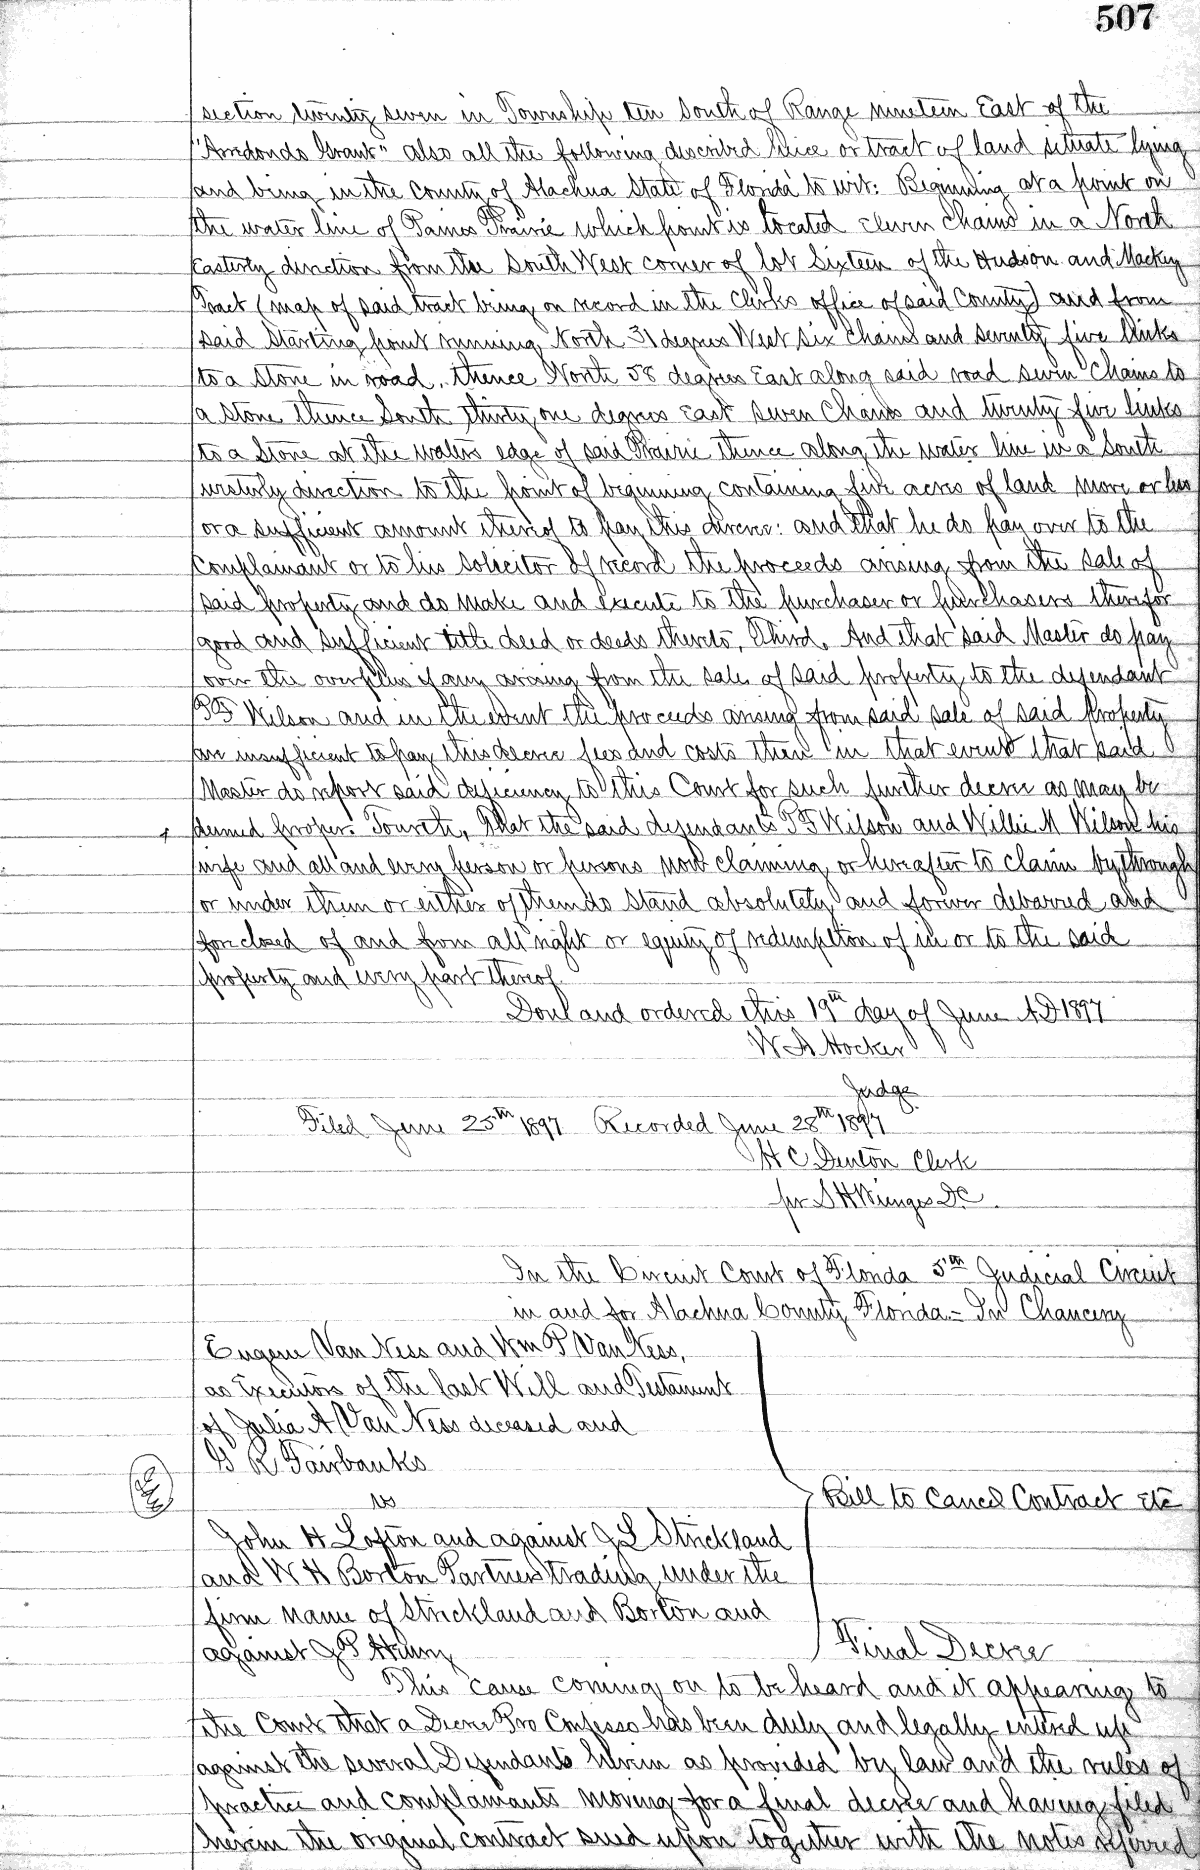 507
section twenty seven in Township ten South of Range nineteen East of the
"Arredondo Grant" also all the following described piece or tract of land situate lying
and being in the County of Alachua State of Florida to wit: Beginning at a point on
the water line of Paines Prairie which point is located eleven chains in a North
Easterly direction from the South West corner of lot Sixteen of the Hudson and Mackey
Tract (map of said tract being on record in the Clerks office of said County) and from
said Starting point running North 31 degrees West six chains and seventy five links
to a stone in road, thence North 58 degrees East along said road seven chains to
a stone thence South thirty one degrees East seven Chains and twenty five links
to a stone at the waters edge of said Prairie thence along the water line in a South
westerly direction to the point of beginning containing five acres of land more or less
or a sufficient amount thereof to pay this decree: and that he do pay over to the
Complainant or to his Solicitor of record the proceeds arising from the sale of
said property and do make and execute to the purchaser or purchasers therefor
good and sufficient title deed or deeds thereto, Third. And that said Master do pay
over the overplus if any arising from the sale of said property to the defendant
P F Wilson and in the event the proceeds arising from said sale of said property
are insufficient to pay this decree fees and costs then in that event that said
Master do report said deficiency to this Court for such further decree as may be
deemed proper. Fourth, That the said defendants P F Wilson and Willie M Wilson his
wife and all and every person or persons now claiming or hereafter to claim by through
or under them or either of them do stand absolutely and forever debarred and
foreclosed of and from all right or equity of redemption of in or to the said
property and every part thereof.
Done and ordered this 19th day of June A.D 1897
W A Hocker
Judge
Filed June 25th 1897 Recorded June 28th 1897
H C Denton Clerk
pr S H Wienges D.C.
In the Circuit Court of Florida 5th Judicial Circuit
in and for Alachua County Florida - In Chancery
Eugene Van Ness and Wm P Van Ness,
as Executors of the last Will and Testament
of Julia A Van Ness deceased and
G R Fairbanks
vs
Bill to Cancel Contract etc
John H Lofton and against J L Strickland
and W H Borton Partners trading under the
firm name of Strickland and Borton and
against J P Henry
Final Decree
This cause coming on to be heard and it appearing to
the Court that a Decree Pro Confesso has been duly and legally entered up
against the several Defendants herein as provided by law and the rules of
practice and complainants moving for a final decree and having filed
herein the original contract sued upon together with the notes referred